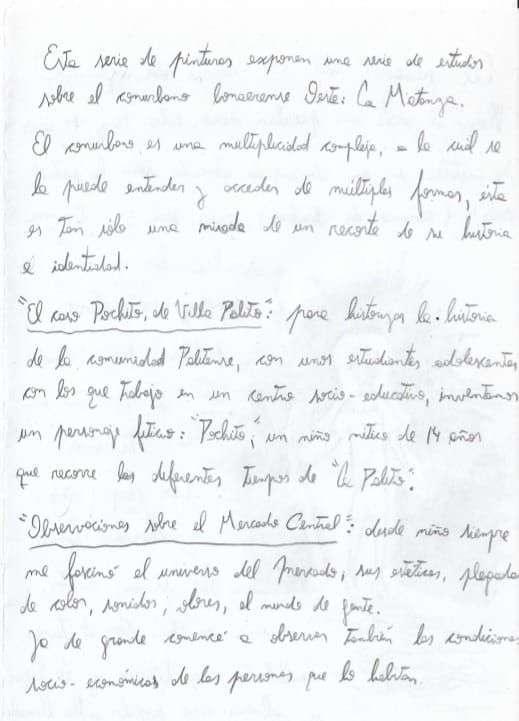 Esta serie de pinturas exponen una serie de estudos
sobre el conurbano bonaerense Oeste: La Matanza.
El conurbano es una multiplicidad compleja, a la cuál se
la puede entender y acceder de múltiples formas, ésta
es tan sólo una mirada de un recorte de su historia
e identidad.
"El caso Pochito, de Villa Palito": para historizar la historia
de la comunidad Palitense, con unos estudiantes adolescentes
con los que trabajo en un centro socio-educativo, inventamos
un personaje fiticio: "Pochito", un niño mítico de 14 años
que recorre los diferentes tiempos de "la Palito".
"Observaciones sobre el Mercado Central": desde niño siempre
me fascinó el universo del mercado, sus estéticas, plagadas
de color, sonidos, olores, el mundo de gente.
Ya de grande comencé a observar también las condiciones
socio-económicas de las personas que lo habitan.